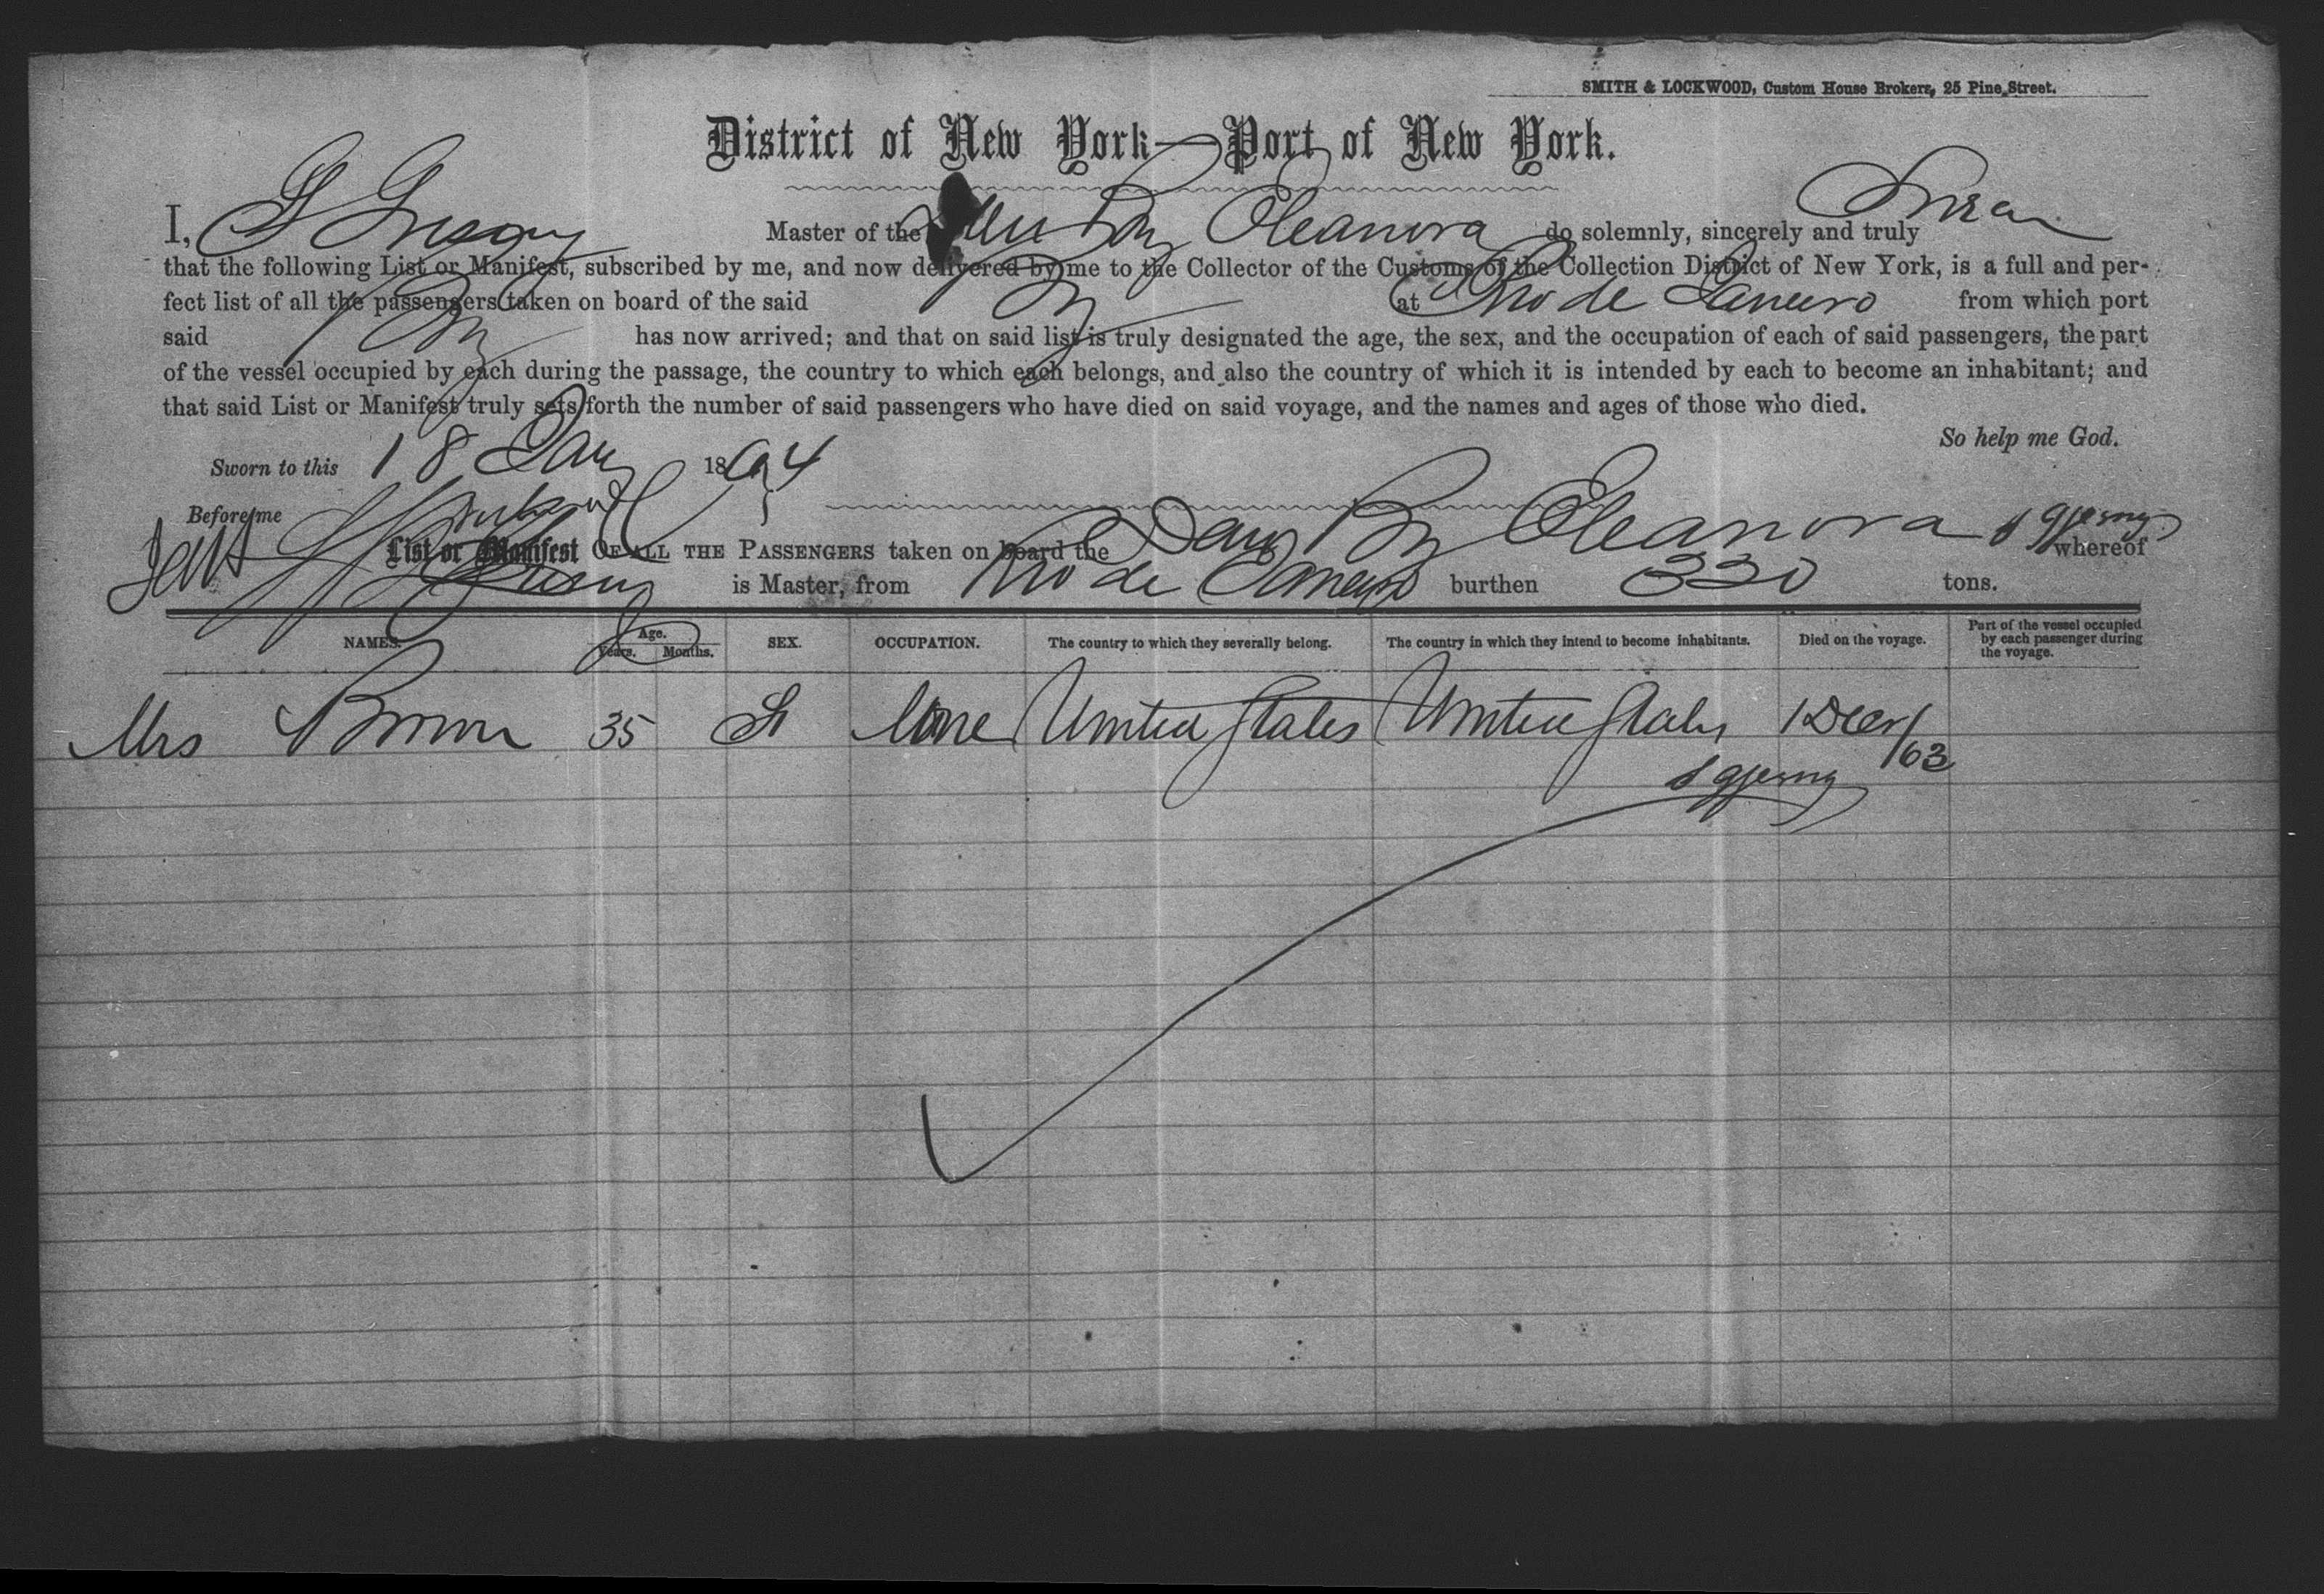 SMITH & LOCKWOOD, Custom House Brokers, 25 Pine Street.
District of New York—Port of New York.
I, Master of the Eleanora do solemnly, sincerely and truly Swear
that the following List or Manifest, subscribed by me, and now delivered by me to the Collector of the Customs of the Collection District of New York, is a full and per-
fect list of all the passengers taken on board of the said Brig at Rio de Janeiro from which port
said Brig has now arrived; and that on said list is truly designated the age, the sex, and the occupation of each of said passengers, the part
of the vessel occupied by each during the passage, the country to which each belongs, and also the country of which it is intended by each to become an inhabitant; and
that said List or Manifest truly sets forth the number of said passengers who have died on said voyage, and the names and ages of those who died.
So help me God.
Sworn to this 18 Jan 1864
Before me
List or Manifest OF ALL THE PASSENGERS taken on board the Dan Brg Eleanora whereof
is Master, from Rio de Janeiro burthen 330 tons.
NAMES. Age. Years. Months. SEX. OCCUPATION. The country to which they severally belong. The country in which they intend to become inhabitants. Died on the voyage. Part of the vessel occupied by each passenger during the voyage.
Mrs Brown 35 None United States United States 1 Decr/63